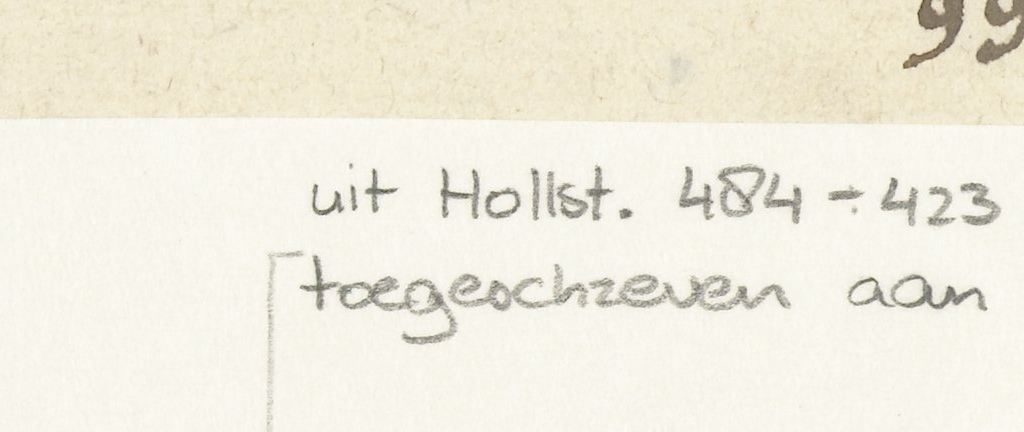 99
uit Hollst. 484 ÷ 423
toegeschreven aan